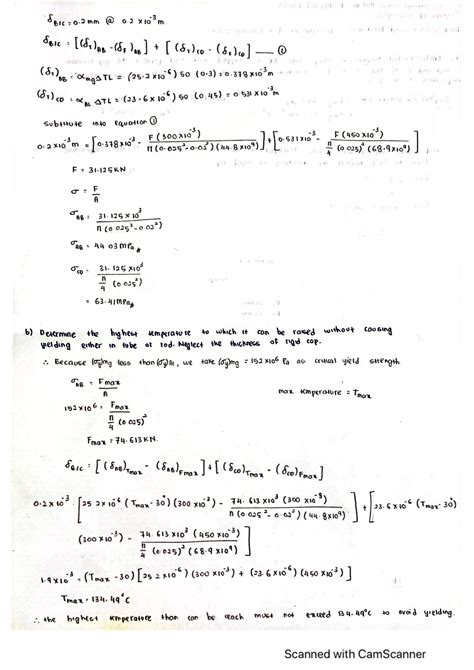 δB/C = 0.2 mm @ 0.2 x10⁻³m
δB/C = [(δT)AB - (δF)AB] + [(δT)CD - (δF)CD] — ①
(δT)AB = αmg ΔTL = (25.2 x10⁻⁶) 50 (0.3) = 0.378x10⁻³m
(δT)CD = αAl ΔTL = (23.6 x10⁻⁶) 50 (0.45) = 0.531 x10⁻³m
substitute into equation ①
0.2 x10⁻³m = [0.378x10⁻³ - F(300x10⁻³) / π(0.025² - 0.02²)(44.8x10⁹)] + [0.531x10⁻³ - F(450x10⁻³) / π/4 (0.025)²(68.9x10⁹)]
F = 31.125KN
σ = F/A
σAB = 31.125 x10³ / π(0.025² - 0.02²)
σAB = 44.03 MPa
σCD = 31.125 x10³ / π/4 (0.025²)
= 63.41MPa
b) Determine the highest temperature to which it can be raised without causing
yielding either in tube or rod. Neglect the thickness of rigid cap.
∴ Because (σy)mg less than (σy)Al, we take (σy)mg = 152 x10⁶ Pa as critical yield strength
σAB = Fmax / A
max temperature = Tmax
152x10⁶ = Fmax / π/4 (0.025)²
Fmax = 74.613KN.
δB/C = [(δAB)Tmax - (δAB)Fmax] + [(δCD)Tmax - (δCD)Fmax]
0.2x10⁻³ = [25.2 x10⁻⁶ (Tmax - 30)(300 x10⁻³) - 74.613 x10³ (300 x10⁻³) / π(0.025² - 0.02²)(44.8x10⁹)] + [23.6 x10⁻⁶ (Tmax - 30)
(300 x10⁻³) - 74.613 x10³ (450 x10⁻³) / π/4 (0.025)² (68.9x10⁹)]
1.9x10⁻³ = (Tmax - 30)[25.2 x10⁻⁶ (300 x10⁻³) + (23.6 x10⁻⁶)(450 x10⁻³)]
Tmax = 134.49°C
∴ the highest temperature than can be reach must not exceed 134.49°C to avoid yielding.
Scanned with CamScanner